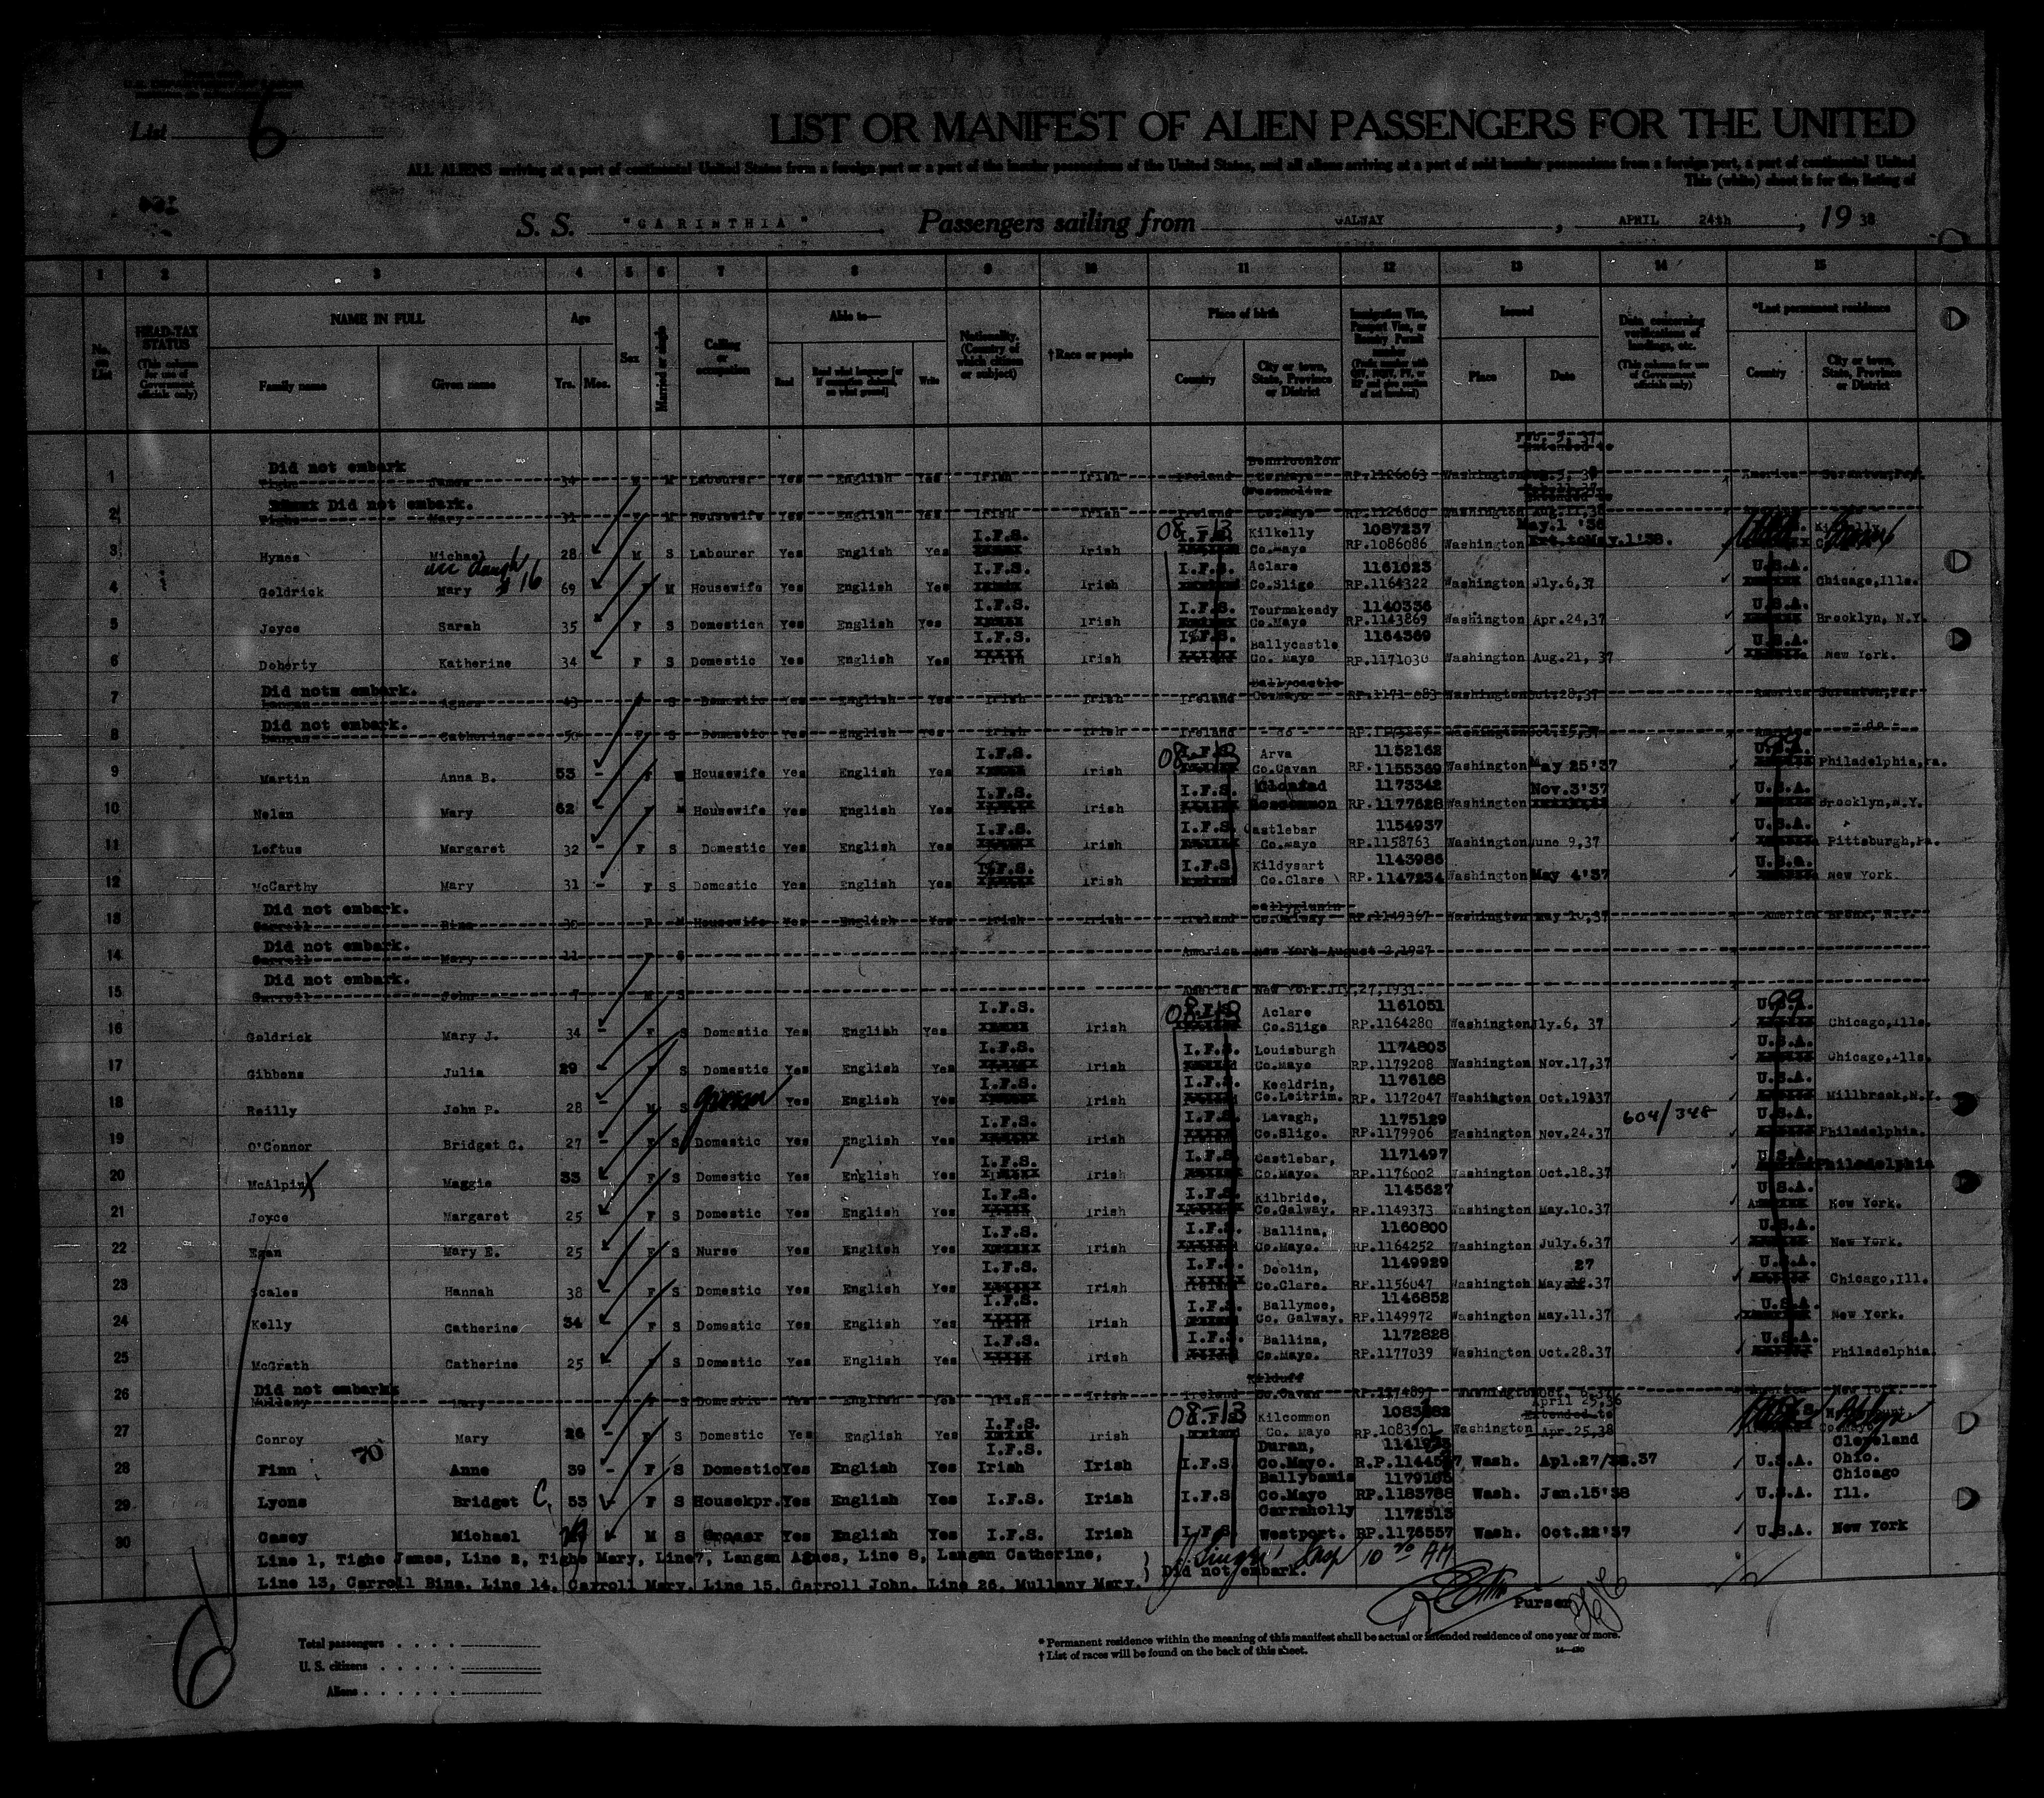 List 6
LIST OR MANIFEST OF ALIEN PASSENGERS FOR THE UNITED
ALL ALIENS arriving at a port of continental United States from a foreign port or a port of the insular possessions of the United States, and all aliens arriving at a port of said insular possessions from a foreign port, a port of continental United
This (white) sheet is for the listing of
S. S. "CARINTHIA" Passengers sailing from GALWAY, APRIL 24th, 19 38
1 2 3 4 5 6 7 8 9 10 11 12 13 14 15
No. on List
HEAD-TAX STATUS (This column for use of Government officials only)
NAME IN FULL Family name Given name
Age Yrs. Mos.
Sex
Married or single
Calling or occupation
Able to— Read Read what language [or if exemption claimed, on what ground] Write
Nationality. (Country of which citizen or subject)
†Race or people
Place of birth Country City or town, State, Province or District
Immigration Visa, Passport Visa, or Reentry Permit number
Issued Place Date
Data concerning verifications of landings, etc. (This column for use of Government officials only)
*Last permanent residence Country City or town, State, Province or District
1 Did not embark Tighe James 34 M M Labourer Yes English Yes Irish Irish Ireland Co.Mayo RP.1126063 Washington America Scranton,Pa.
2 Did not embark. Tighe Mary 31 F M Housewife Yes English Yes Irish Irish Ireland Co.Mayo RP.1126600 Washington Aug.11,36
3 Hynes Michael 28 M S Labourer Yes English Yes I.F.S. Irish 08-13 I.F.S. Kilkelly Co.Mayo 1087237 RP.1086086 Washington May.1 '36 Ext.toMay.1'38.
4 Goldrick Mary 69 F M Housewife Yes English Yes I.F.S. Irish I.F.S. Aclare Co.Sligo 1161023 RP.1164322 Washington Jly.6,37 U.S.A. Chicago,Ills.
5 Joyce Sarah 35 F S Domestic Yes English Yes I.F.S. Irish I.F.S. Tourmakeady Co.Mayo 1140336 RP.1143869 Washington Apr.24,37 U.S.A. Brooklyn, N.Y.
6 Doherty Katherine 34 F S Domestic Yes English Yes I.F.S. Irish I.F.S. Ballycastle Co. Mayo 1164369 RP.1171030 Washington Aug.21, 37 U.S.A. New York.
7 Did notx embark. Langan Agnes 43 F S Domestic Yes English Yes Irish Irish Ireland Ballycastle Co.Mayo RP.1171 083 Washington Oct.28,37 America Scranton,Pa.
8 Did not embark. Langan Catherine 50 F S Domestic Yes English Yes Irish Irish Ireland - do - Washington America - do -
9 Martin Anna B. 53 F Housewife Yes English Yes I.F.S. Irish 08-13 I.F.S. Arva Co.Cavan 1152162 RP.1155369 Washington May 25'37 U.S.A. Philadelphia,Pa.
10 Nolan Mary 62 F M Housewife Yes English Yes I.F.S. Irish I.F.S. Roscommon 1173342 RP.1177628 Washington Nov.3'37 U.S.A. Brooklyn,N.Y.
11 Loftus Margaret 32 F S Domestic Yes English Yes I.F.S. Irish I.F.S. Castlebar Co.Mayo 1154937 RP.1158763 Washington June 9,37 U.S.A. Pittsburgh,Pa.
12 McCarthy Mary 31 F S Domestic Yes English Yes I.F.S. Irish I.F.S Kildysart Co.Clare 1143986 RP.1147234 Washington May 4'37 U.S.A. New York
13 Did not embark. Carroll Bina 30 F M Housewife Yes English Yes Irish Irish Ireland Ballyglunin Co.Galway RP.1149367 Washington May 10,37 America Bronx, N.Y.
14 Did not embark. Carroll Mary 11 F S America New York August 2,1927
15 Did not embark. Carroll John 7 M S America New York.Jly,27,1931.
16 Goldrick Mary J. 34 F S Domestic Yes English Yes I.F.S. Irish 08-13 I.F.S. Aclare Co.Sligo 1161051 RP.1164280 Washington Jly.6, 37 99 U.S.A. Chicago,Ills.
17 Gibbons Julia 29 F S Domestic Yes English Yes I.F.S. Irish I.F.S. Louisburgh Co.Mayo 1174803 RP.1179208 Washington Nov.17,37 U.S.A. Chicago,Ills.
18 Reilly John P. 28 M S Yes English Yes I.F.S. Irish I.F.S. Keeldrin, Co.Leitrim. 1176168 RP. 1172047 Washington Oct.19,37 U.S.A. Millbrook,N.Y.
19 O'Connor Bridget C. 27 F S Domestic Yes English Yes I.F.S. Irish I.F.S. Lavagh, Co.Sligo. 1175129 RP.1179906 Washington Nov.24.37 604/348 U.S.A. Philadelphia.
20 McAlpin Maggie 33 F S Domestic Yes English Yes I.F.S. Irish I.F.S. Castlebar, Co.Mayo. 1171497 RP.1176002 Washington Oct.18.37 U.S.A. Philadelphia
21 Joyce Margaret 25 F S Domestic Yes English Yes I.F.S. Irish I.F.S. Kilbride, Co.Galway. 1145627 RP.1149373 Washington May.10.37 U.S.A. New York.
22 Egan Mary E. 25 F S Nurse Yes English Yes I.F.S. Irish I.F.S. Ballina, Co.Mayo. 1160800 RP.1164252 Washington July.6.37 U.S.A. New York.
23 Scales Hannah 38 F S Domestic Yes English Yes I.F.S. Irish I.F.S. Doolin, Co.Clare. 1149929 RP.1156047 Washington May 27 .37 U.S.A. Chicago,Ill.
24 Kelly Catherine 34 F S Domestic Yes English Yes I.F.S. Irish I.F.S. Ballymoe, Co. Galway. 1146852 RP.1149972 Washington May.11.37 U.S.A. New York.
25 McGrath Catherine 25 F S Domestic Yes English Yes I.F.S. Irish I.F.S. Ballina, Co.Mayo. 1172828 RP.1177039 Washington Oct.28.37 U.S.A. Philadelphia.
26 Did not embark Mullany Mary F S Domestic Yes English Yes Irish Irish Ireland Kilduff Co.Cavan RP.1174897 Washington America New York.
27 Conroy Mary 26 F S Domestic Yes English Yes I.F.S. Irish 08-13 I.F.S. Kilcommon Co. Mayo RP.1083901 Washington April 25,36 Extended to Apr.25,38
28 Finn Anne 39 F S Domestic Yes English Yes I.F.S. Irish Irish I.F.S. Duran, Co.Mayo. Wash. Cleveland Ohio. U.S.A.
29 Lyons Bridget C. 53 F S Housekpr. Yes English Yes I.F.S. Irish I.F.S Co.Mayo RP.1183788 Wash. Jan.15'38 U.S.A. Chicago Ill.
30 Casey Michael M S Grocer Yes English Yes I.F.S. Irish I.F.S. Carraholly Westport. 1172513 RP.1176557 Wash. Oct.22'37 U.S.A. New York
Line 1, Tighe James, Line 2, Tighe Mary, Line7, Langan Agnes, Line 8, Langan Catherine,
Line 13, Carroll Bina, Line 14, Carroll Mary, Line 15, Carroll John, Line 26, Mullany Mary. } Did not embark.
Purser
6
Total passengers
U. S. citizens
Aliens
* Permanent residence within the meaning of this manifest shall be actual or intended residence of one year or more.
† List of races will be found on the back of this sheet.